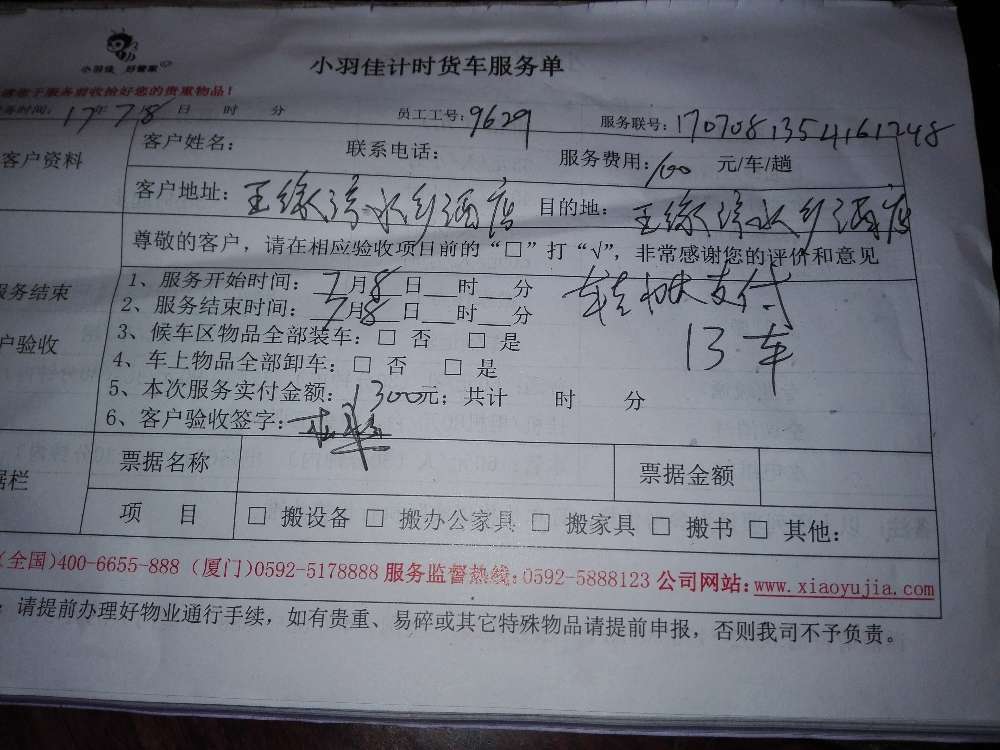 小羽佳 好管家
小羽佳计时货车服务单
务时间: 17年7月8日 时 分 员工工号: 9629 服务联号: 1707081354161748
客户资料
客户姓名: 联系电话: 服务费用: 100 元/车/趟
客户地址: 水乡酒店 目的地: 水乡酒店
尊敬的客户，请在相应验收项目前的“□”打“√”，非常感谢您的评价和意见
服务结束
户验收
1、服务开始时间: 7月8日__时__分
2、服务结束时间: 7月8日__时__分
支付
13车
3、候车区物品全部装车: □ 否 □ 是
4、车上物品全部卸车: □ 否 □ 是
5、本次服务实付金额: 1300元; 共计 时 分
6、客户验收签字:
据栏
票据名称 票据金额
项 目 □ 搬设备 □ 搬办公家具 □ 搬家具 □ 搬书 □ 其他:
(全国)400-6655-888 (厦门)0592-5178888 服务监督热线:0592-5888123 公司网站: www.xiaoyujia.com
: 请提前办理好物业通行手续，如有贵重、易碎或其它特殊物品请提前申报，否则我司不予负责。